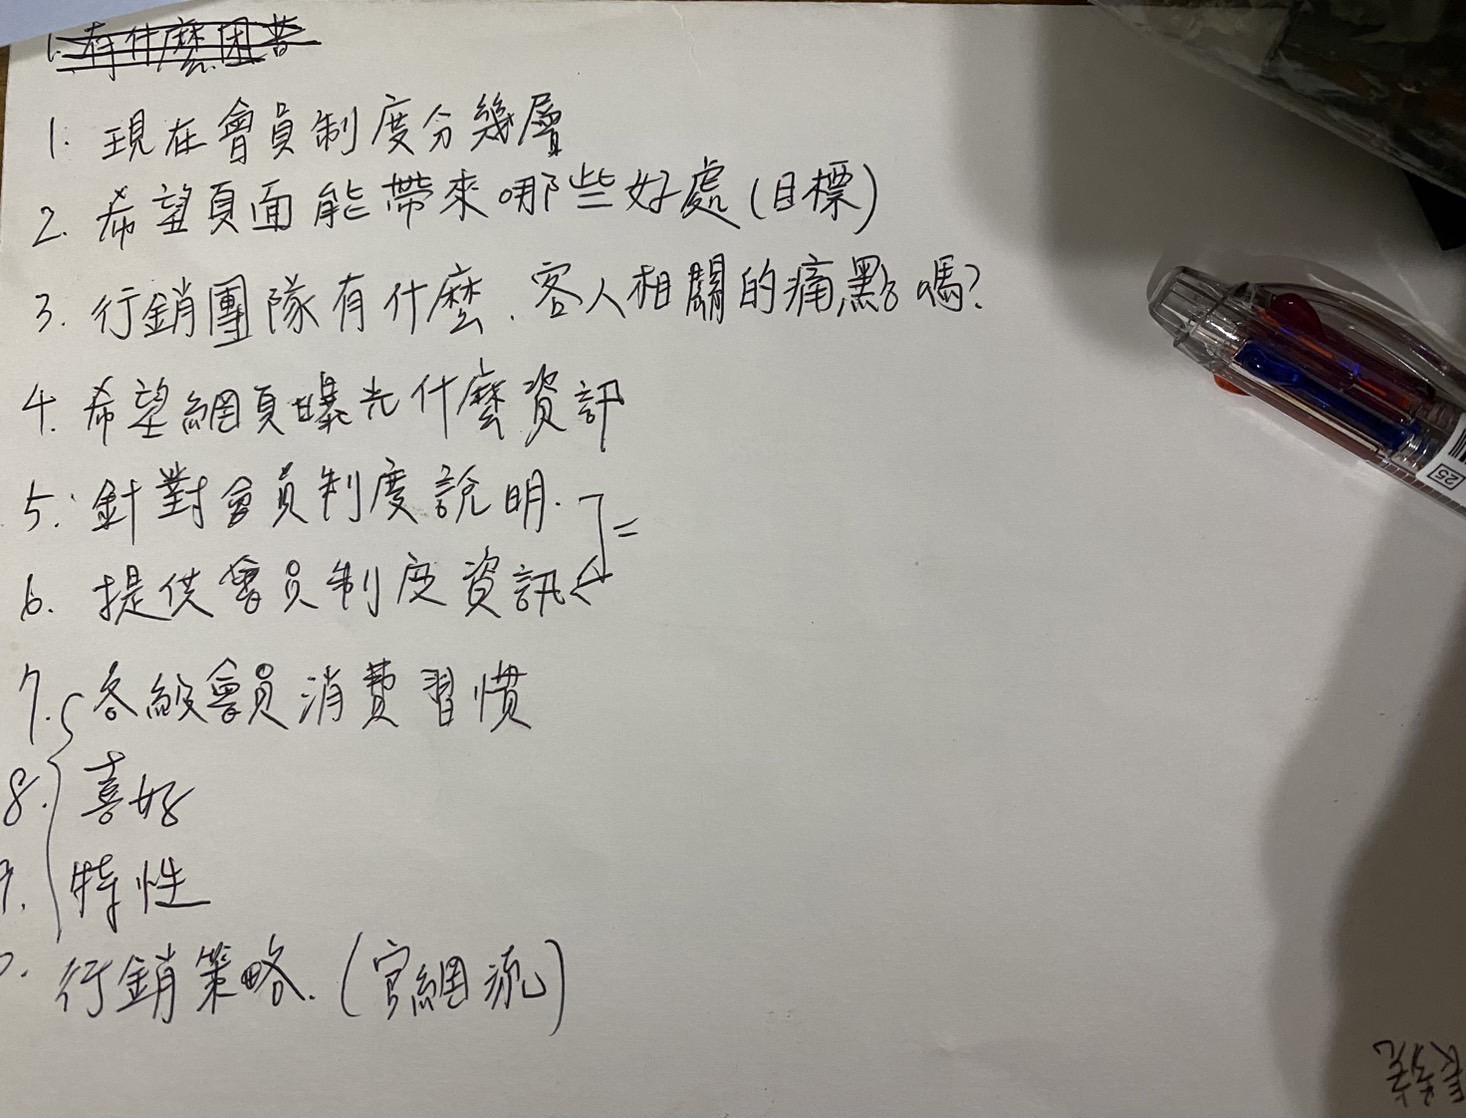 1. 有什麼困苦
1. 現在會員制度分幾層
2. 希望頁面能帶來哪些好處(目標)
3. 行銷團隊有什麼、客人相關的痛點嗎?
4. 希望網頁曝光什麼資訊
5. 針對會員制度說明.
=
6. 提供會員制度資訊
7. 各級會員消費習慣
8. 喜好
9. 特性
行銷策略. (官網流)
25